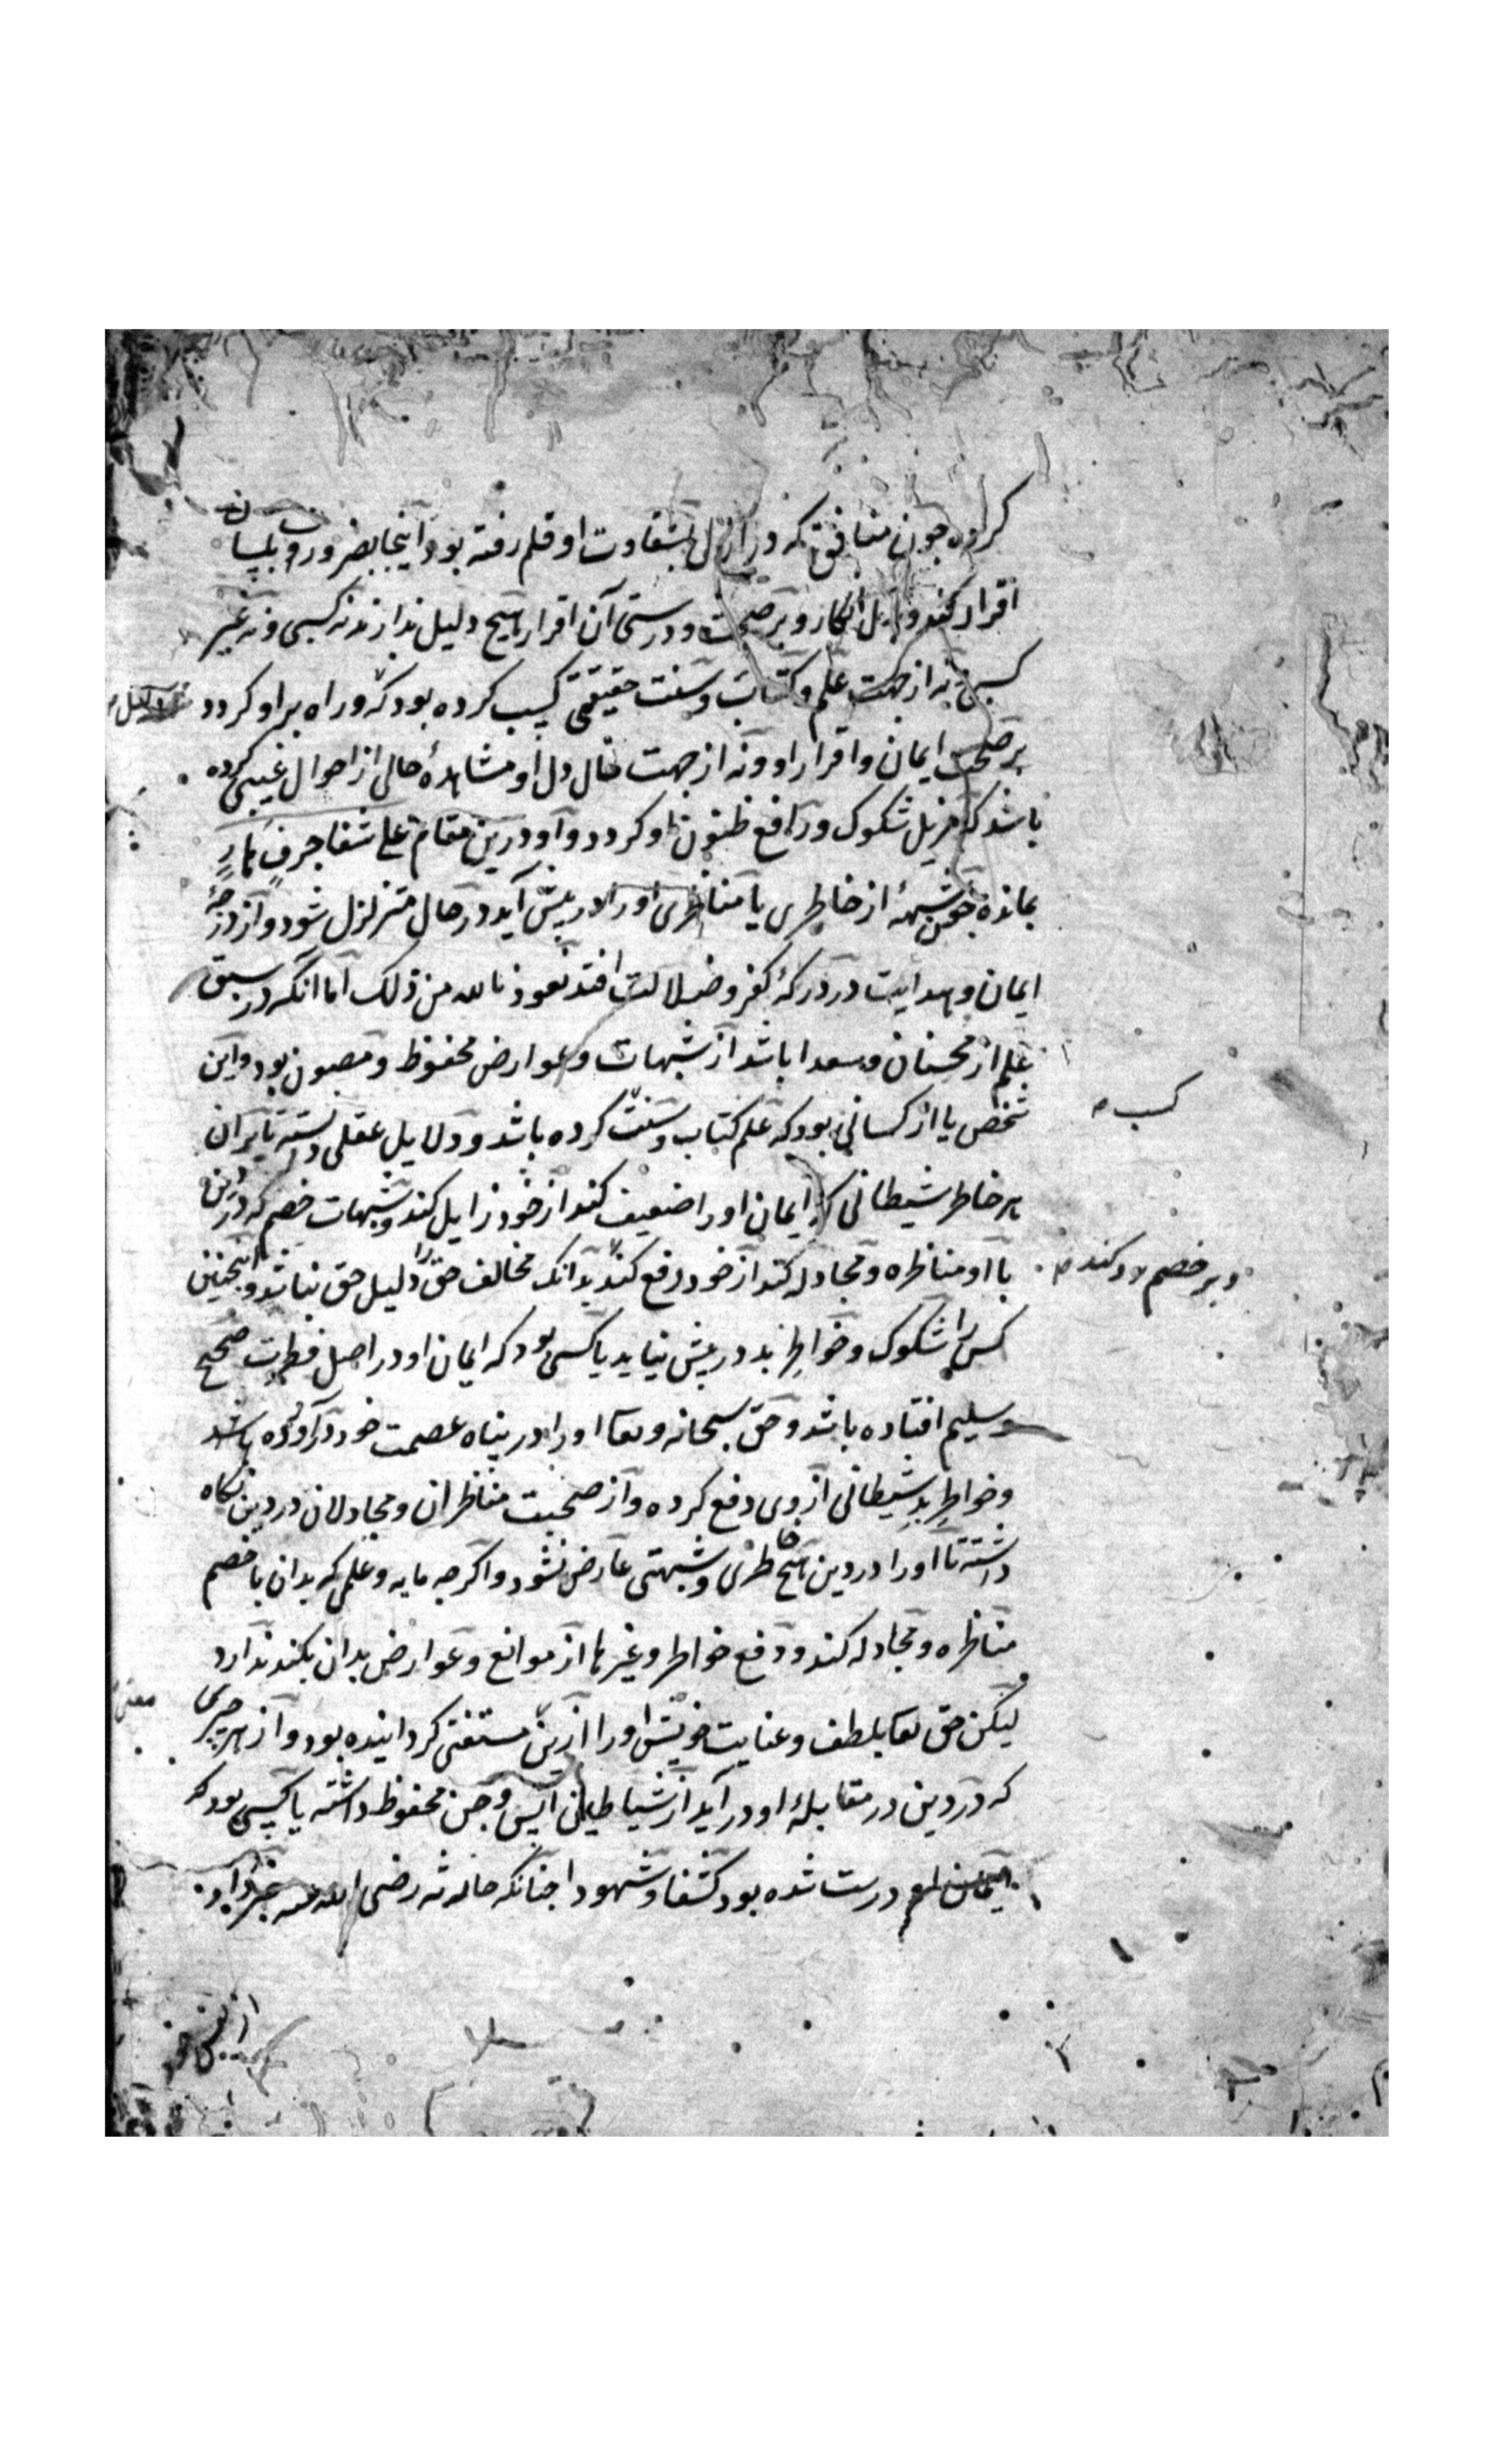 کروه جون منافق که در ازل بشقاوت او قلم رفته بود اینجا بضرورت و بلسان
اقرار کند و بدل انکار و بر صحت و درستی آن اقرار هیچ دلیل ندارند نه کسبی و نه غیر
کسبی نه از جهت علم و کتاب و سنت حقیقتی کسب کرده بود که ور راه براو کردد
بر صحت ایمان و اقرار او و نه از جهت حال دل او مشاهدهٔ حالی از احوال غیبی کرده
باشد که مزیل شکوک و رافع ظنون او کردد و او درین مقام علی شفا جرف هار
بمانده جون شبههٔ از خاطری یا مناظری او را در پیش آید در حال متزلزل شود و از درجهٔ
ایمان و هدایت در درکهٔ کفر و ضلالت افتد نعوذ بالله من ذلک اما انکه در سبق
علم از محسنان و سعدا باشد از شبهات و عوارض محفوظ و مصون بود و این
شخص یا از کسانی بود که علم کتاب و سنت کرده باشد و دلایل عقلی دانسته تا بران
کسب
هر خاطر شیطانی که ایمان او را ضعیف کند از خود زایل کند و شبهات خصم که در دین
با او مناظره و مجادله کند از خود دفع کند بدانک مخالف حق را دلیل حق نباشد و اینجنین
و بر خصم رد کند
کس را شکوک و خواطر بد در پیش نیاید یا کسی بود که ایمان او در اصل فطرت صحیح
و سلیم افتاده باشد و حق سبحانه و تعا او را در پناه عصمت خود درآورده باشد
و خواطر بد شیطانی از وی دفع کرده و از صحبت مناظران و مجادلان در دین نکاه
داشته تا او را در دین هیچ خاطری و شبهتی عارض نشود و اکرجه مایه و علمی که بدان با خصم
مناظره و مجادله کند و دفع خواطر و غیرها از موانع و عوارض بدان بکند ندارد
لیکن حق تعا بلطف و عنایت خویش او را ازین مستغنی کردانیده بود و از هر جیزی
معنی
که در دین در مقابلهٔ او در آید از شیاطین انس و جن محفوظ داشته یا کسی بود که
ایمان او درست شده بود کشفا و شهودا جنانکه حارثه رضی الله عنه خبر داد
از نفس خود